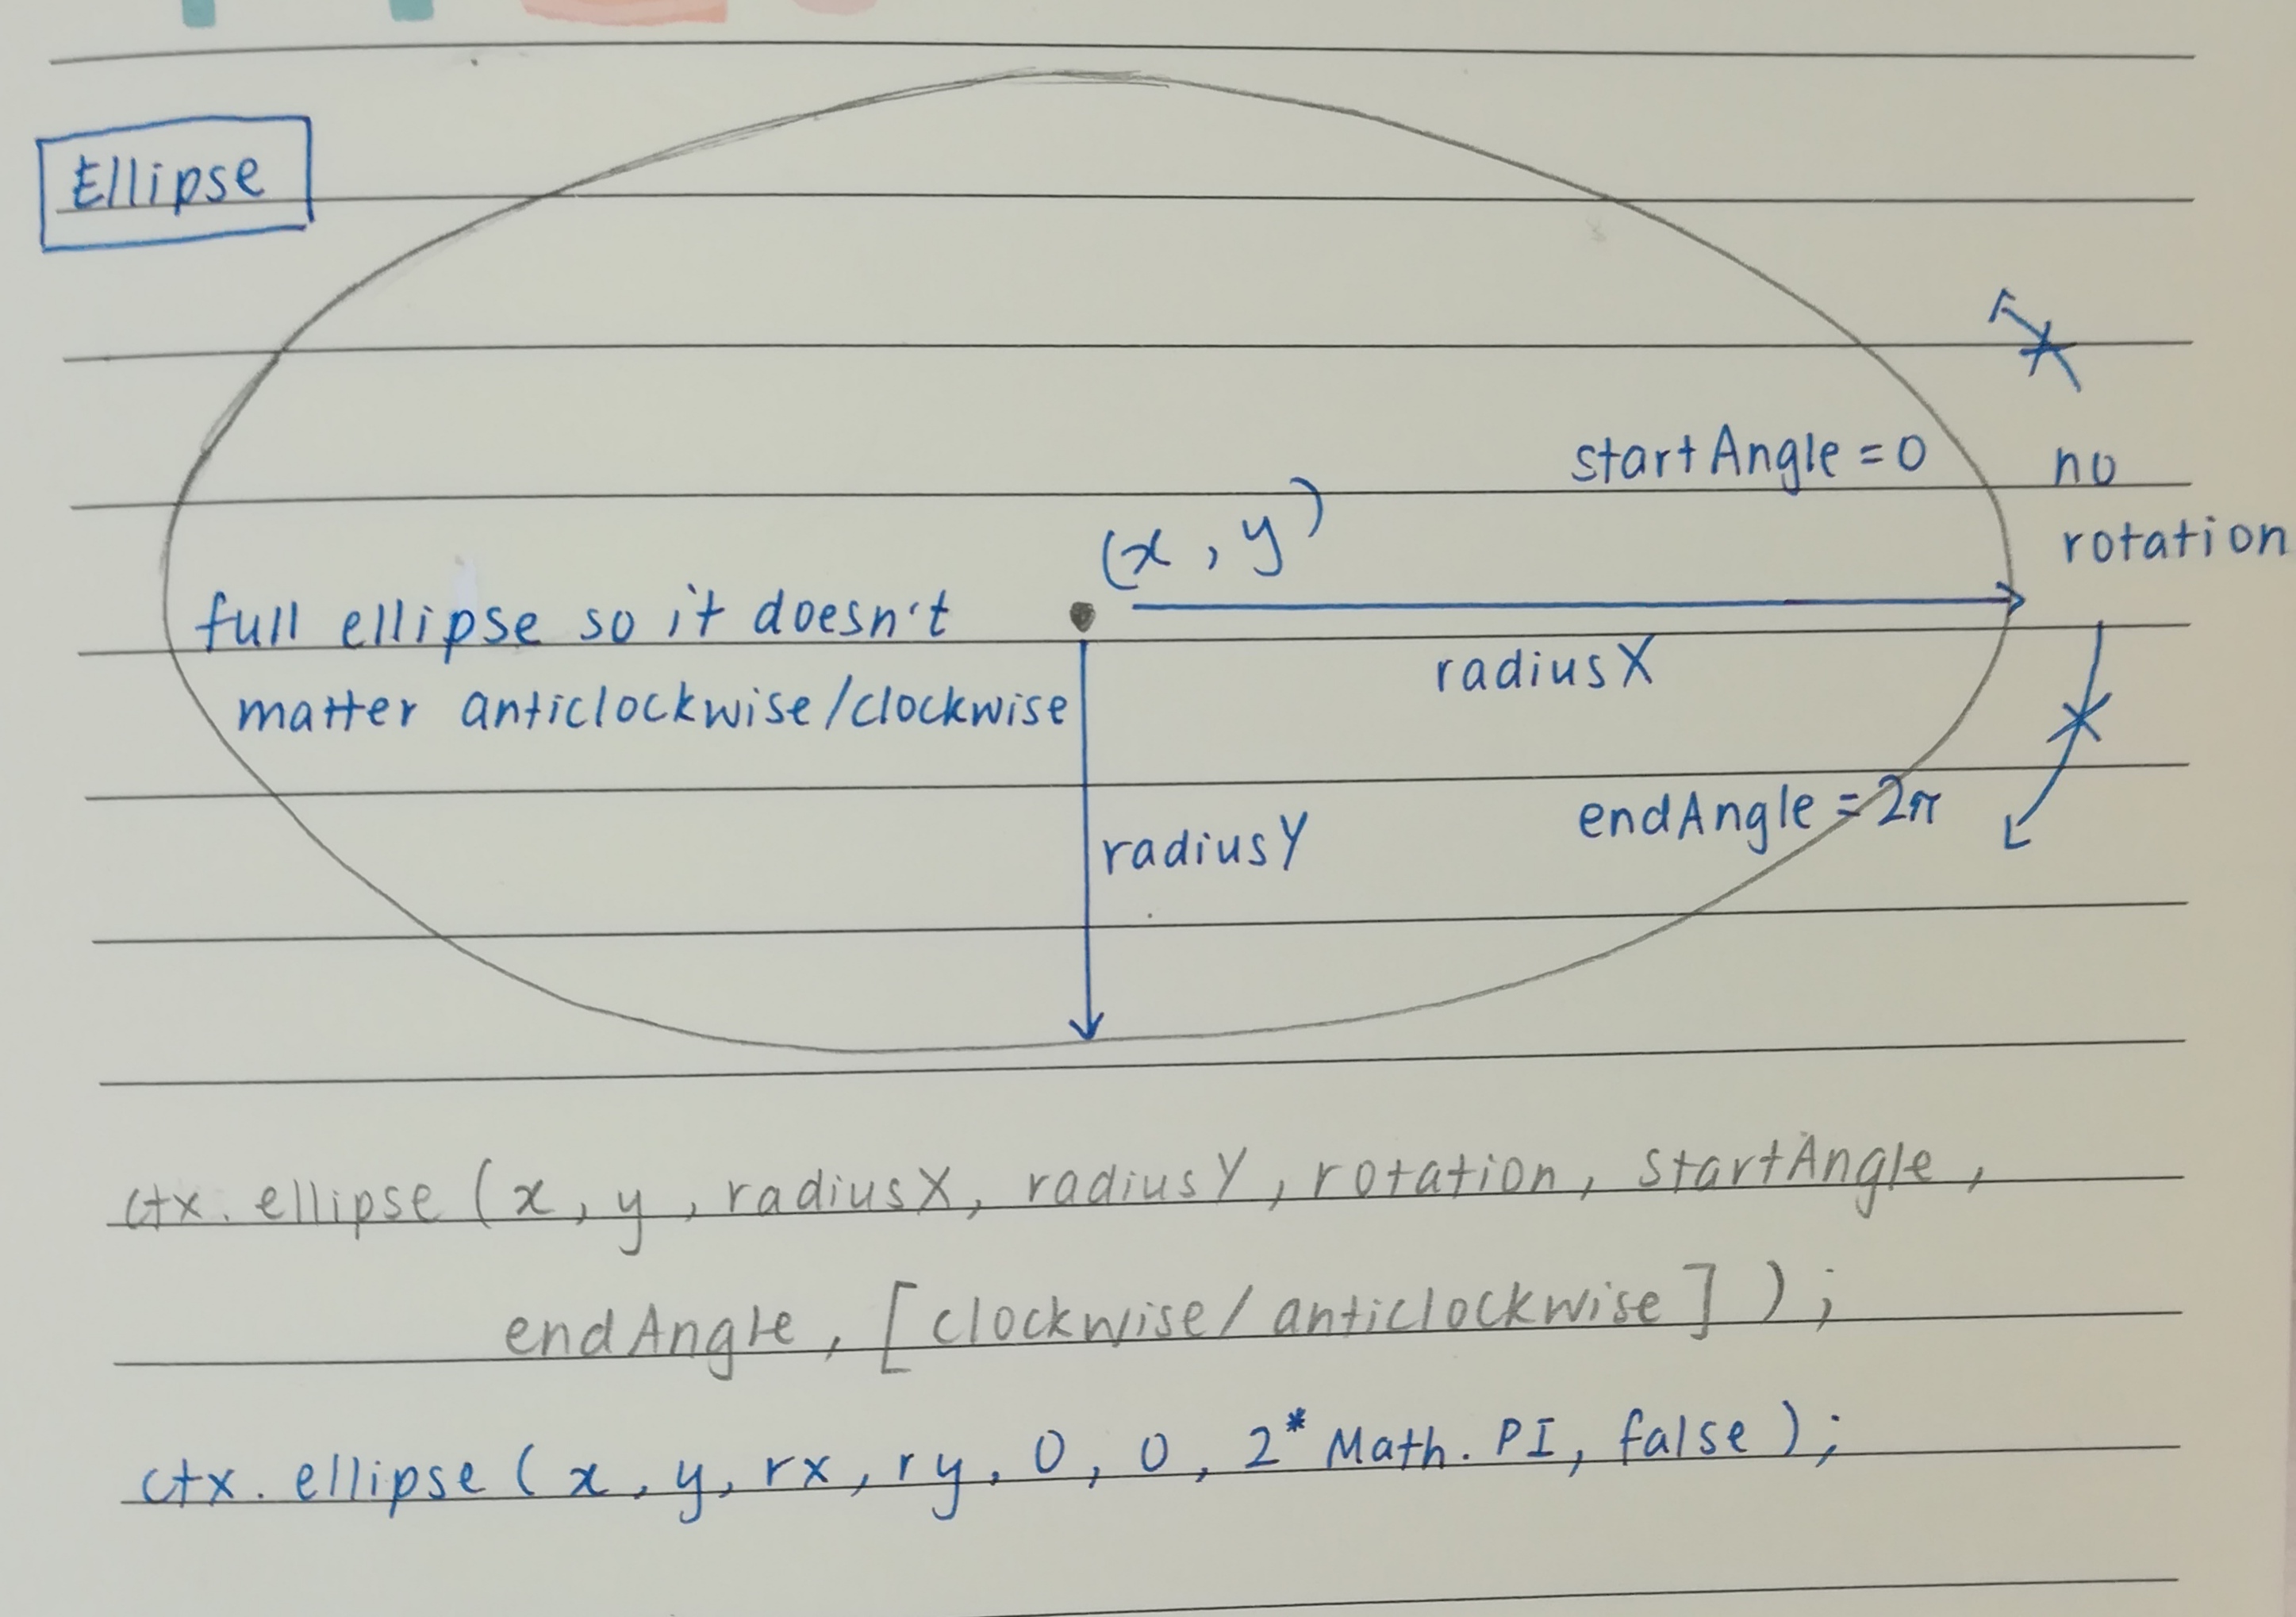 Ellipse
startAngle = 0
no
rotation
(x, y)
full ellipse so it doesn't
matter anticlockwise/clockwise
radiusX
radiusY
endAngle = 2π
ctx. ellipse (x, y, radiusX, radiusY, rotation, startAngle,
endAngle, [clockwise/anticlockwise] );
ctx. ellipse (x, y, rx, ry, 0, 0, 2* Math. PI, false);